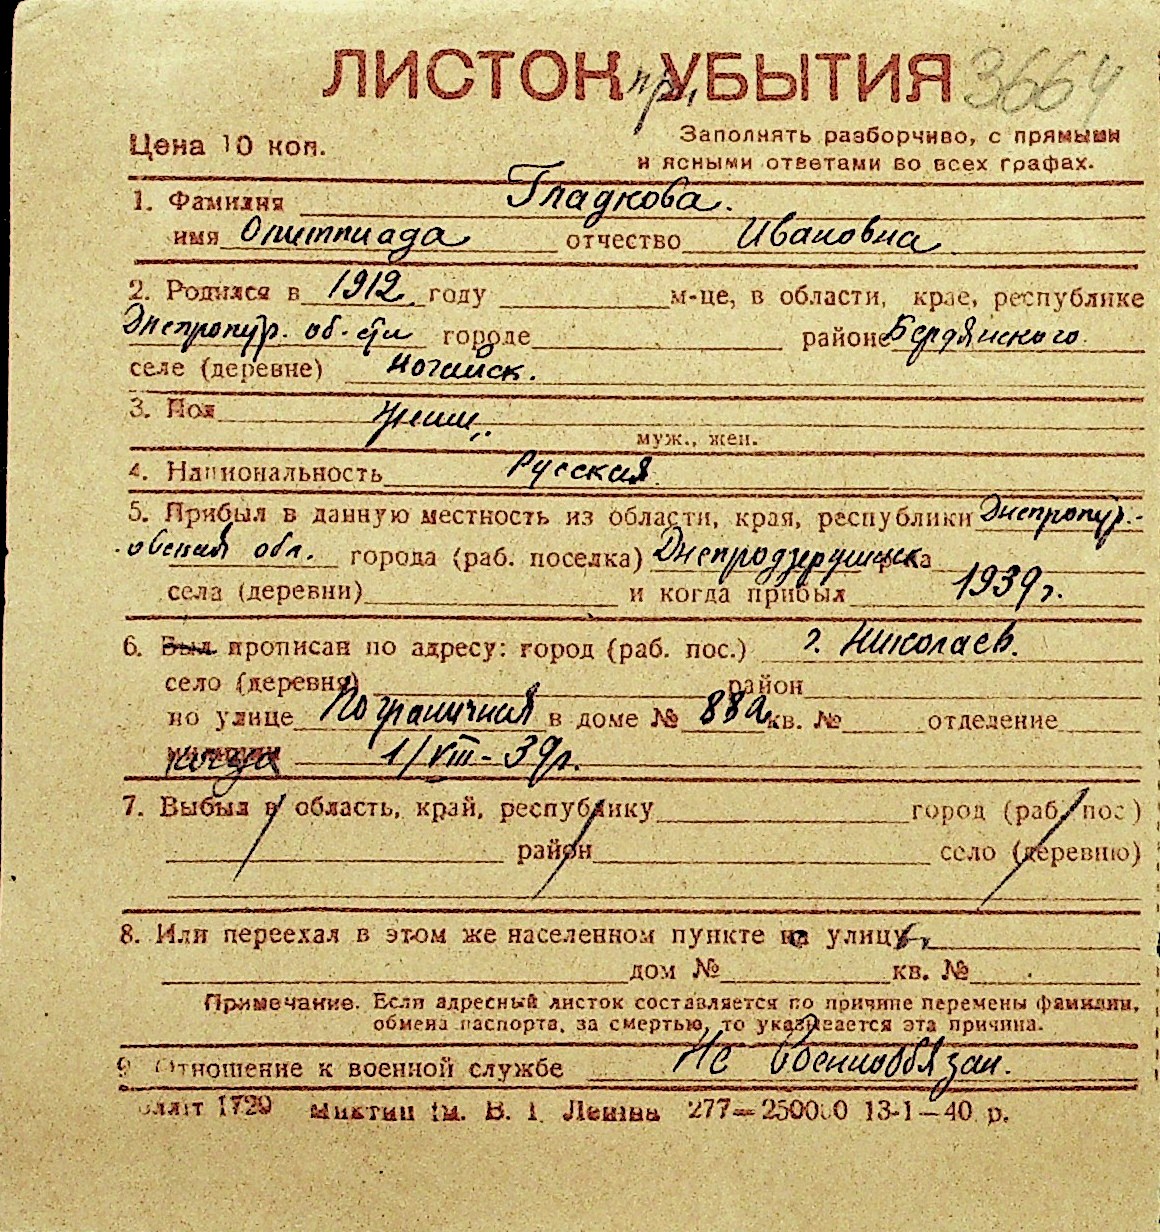 ЛИСТОК пр. УБЫТИЯ 3664
Цена 10 коп.
Заполнять разборчиво, с прямыми
и ясными ответами во всех графах.
1. Фамилия Гладкова.
имя Олимпиада отчество Ивановна
2. Родился в 1912 году м-це, в области, крае, республике
Днепропур. об-сти городе районе Бердянского
селе (деревне) Ногайск.
3. Пол женщ.
муж., жен.
4. Национальность Русская
5. Прибыл в данную местность из области, края, республики Днепропур.-
овская обл. города (раб. поселка) Днепродзержинск р-на
села (деревни) и когда прибыл 1939 г.
6. Был прописан по адресу: город (раб. пос.) г. Николаев.
село (деревня) район
по улице Пограничная в доме № 88а кв. № отделение
когда 1/VIII-39г.
7. Выбыл в область, край, республику город (раб. пос)
район село (деревню)
8. Или переехал в этом же населенном пункте на улицу
дом № кв. №
Примечание. Если адресный листок составляется по причине перемены фамилии,
обмена паспорта, за смертью, то указывается эта причина.
9 Отношение к военной службе Не военнообязан.
1720 Ленина 277—250000 13-1—40 р.